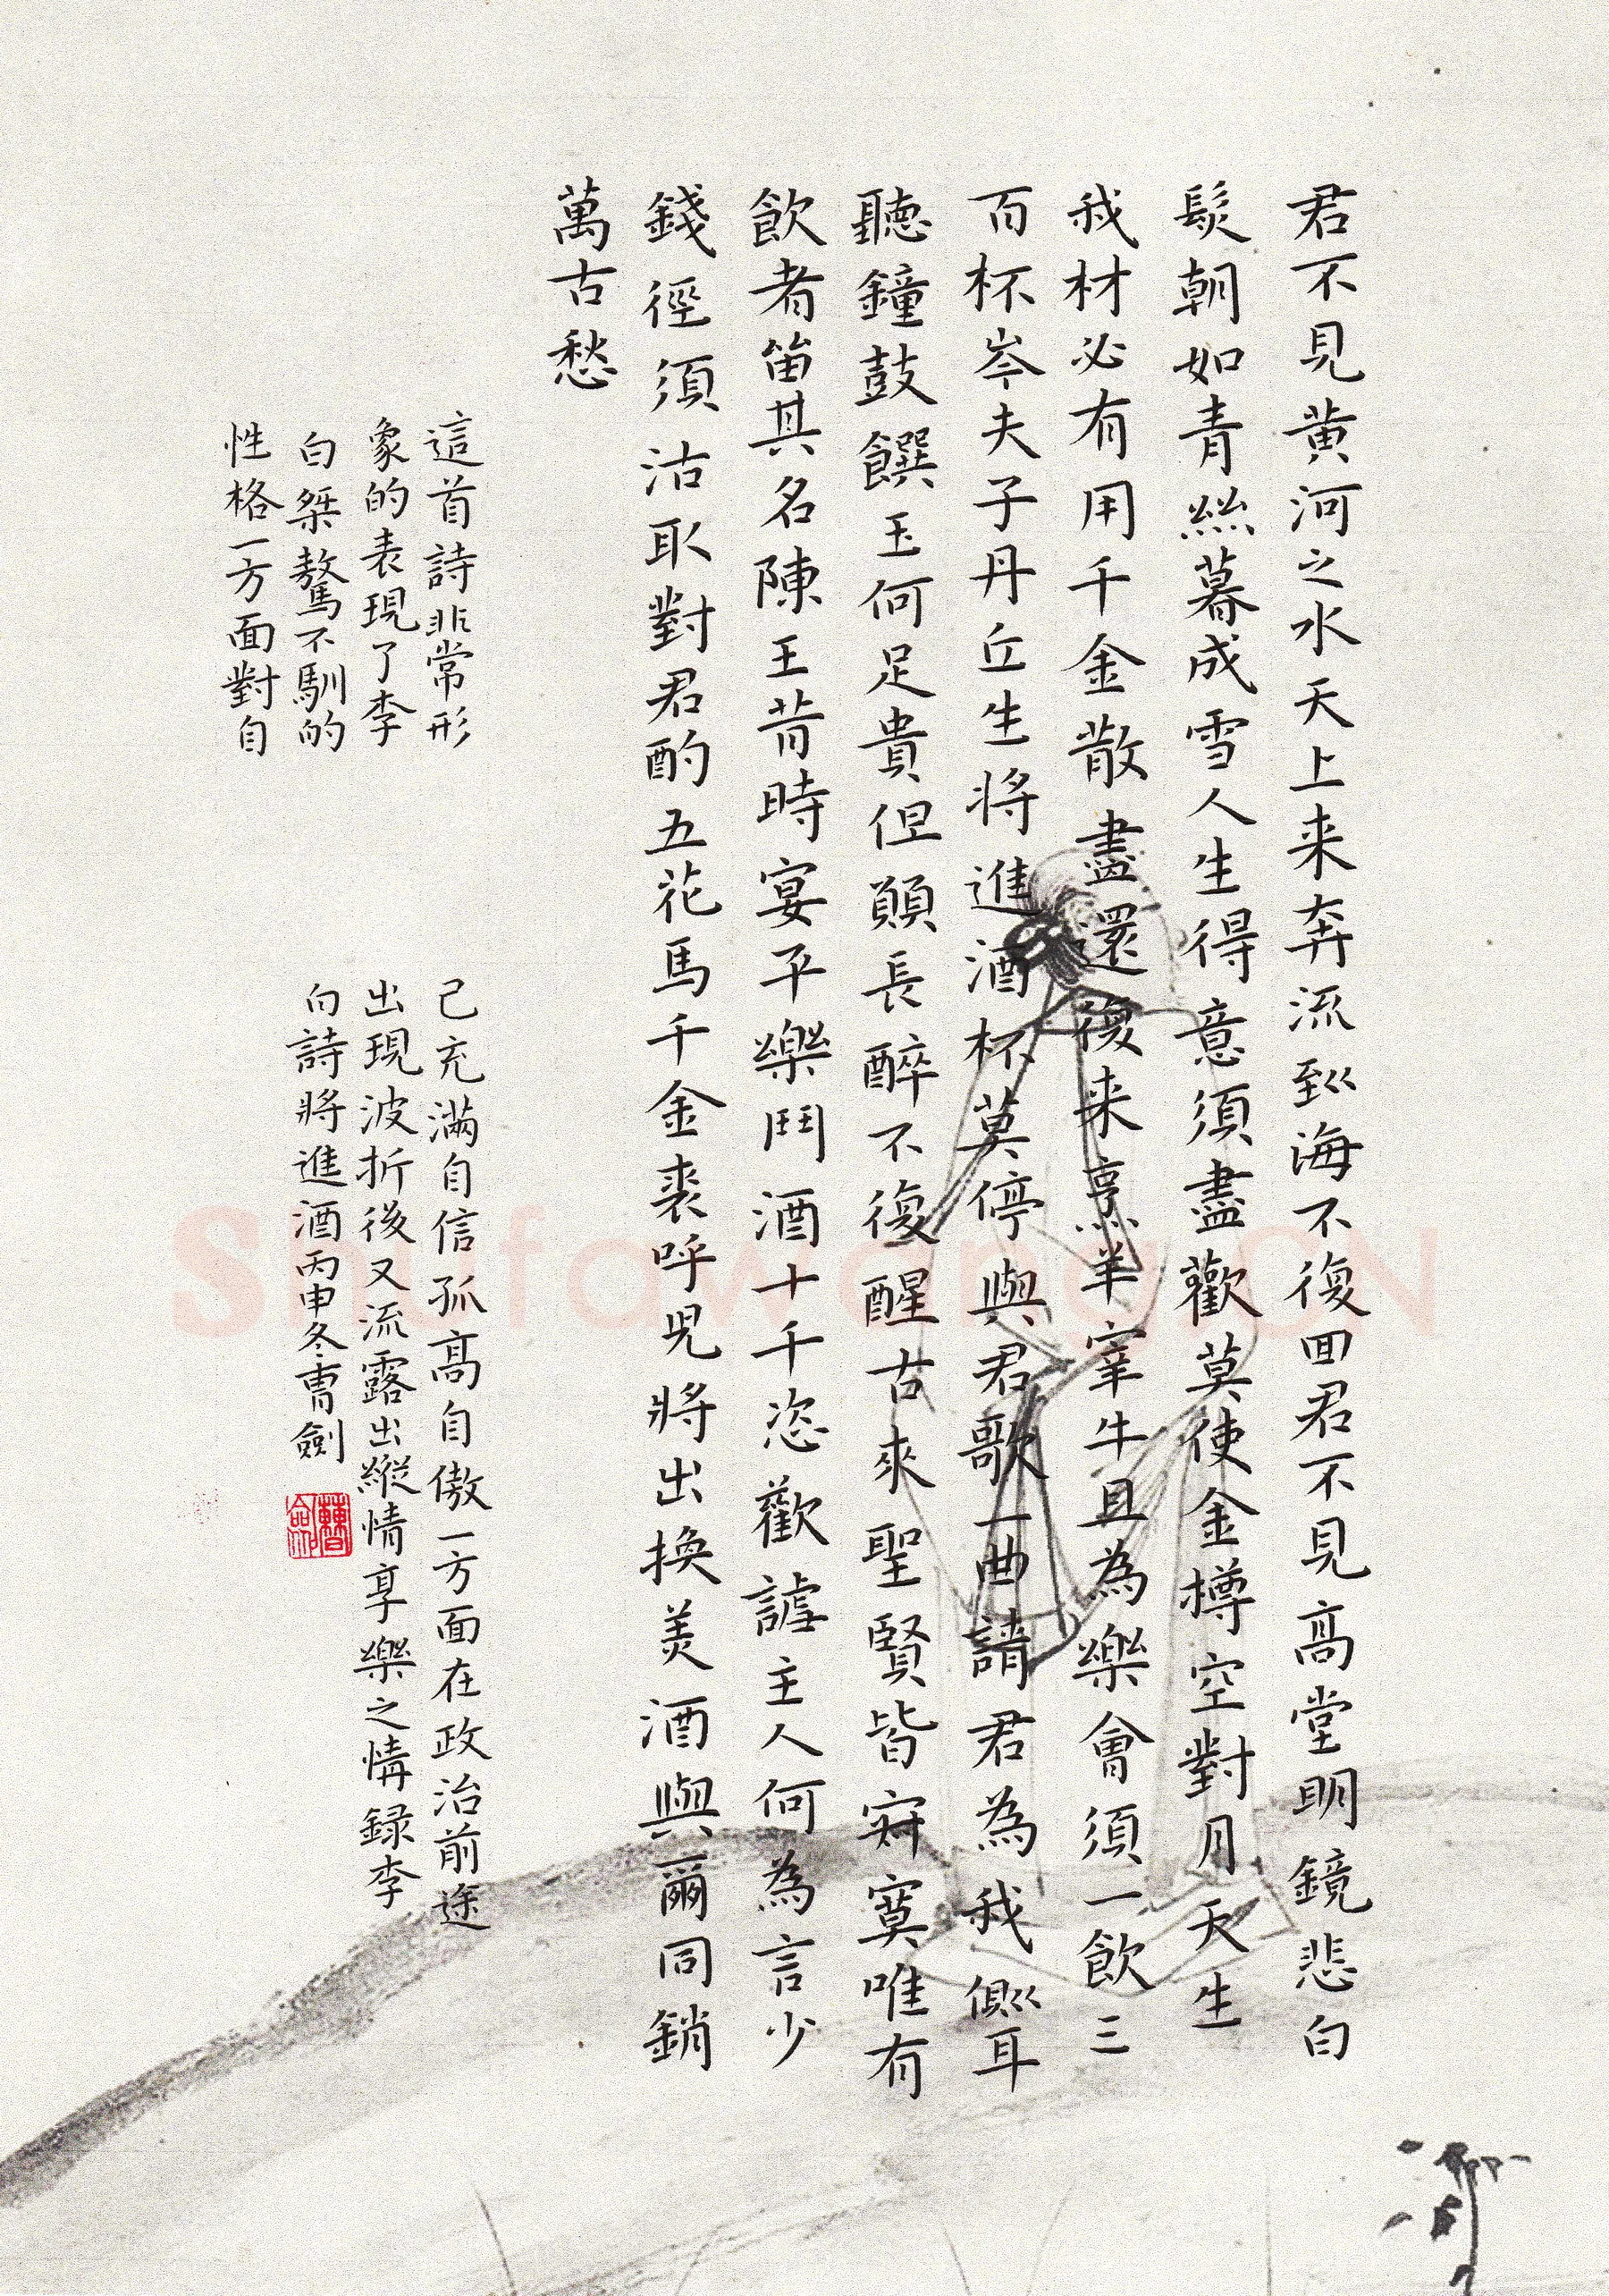 君不見黄河之水天上来奔流到海不復回君不見高堂明鏡悲白
髮朝如青絲暮成雪人生得意須盡歡莫使金樽空對月天生
我材必有用千金散盡還復来烹羊宰牛且為樂會須一飲三
百杯岑夫子丹丘生将進酒杯莫停與君歌一曲請君為我側耳
聽鐘鼓饌玉何足貴但願長醉不復醒古來聖賢皆寂寞唯有
飲者留其名陳王昔時宴平樂鬥酒十千恣歡謔主人何為言少
錢徑須沽取對君酌五花馬千金裘呼児將出換美酒與爾同銷
萬古愁
這首詩非常形
象的表現了李
白桀驁不馴的
性格一方面對自
己充滿自信孤高自傲一方面在政治前途
出現波折後又流露出縱情享樂之情録李
白詩將進酒丙申冬曹劍
Shufawang.CN